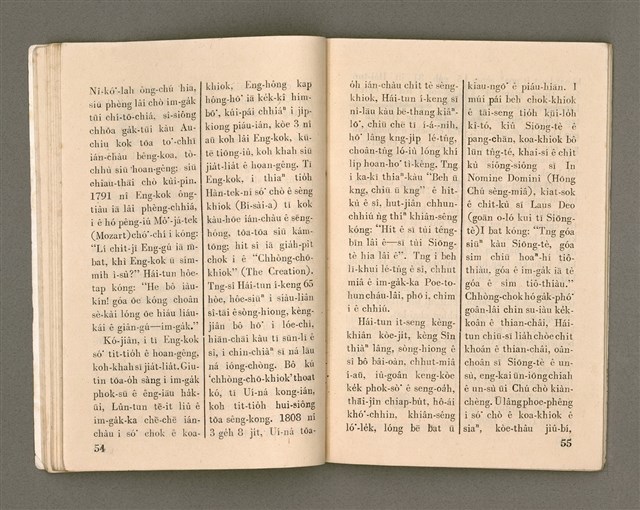 Ní-kó͘-lah ông-chú hia,
siū phèng lâi chò im-ga̍k
tūi chí-tō-chiá, sì-siông
chhōa ga̍k-tūi kàu Au-
chiu kok tōa to͘-chhī
ián-chàu bêng-koa, tò-
chhù siū hoan-gêng; siū
chiau-thāi chò kùi-pin.
1791 nî Eng-kok óng-
tiâu iā lâi phèng-chhiá,
i ê hó pêng-iú Mô͘-jà-tek
(Mozart) chó͘-chí i kóng:
"Lí chit-jī Eng-gú iā m̄-
bat, khì Eng-kok ū sím-
mih ì-sù?" Hái-tun hôe-
tap kóng: "He bô iàu-
kín! góa ōe kóng choân
sè-kài lóng ōe hiáu liáu-
kái ê giân-gú—im-ga̍k."
Kó-jiân, i tī Eng-kok
só͘ tit-tio̍h ê hoan-gêng,
koh-khah sī jia̍t-lia̍t. Giu-
tin tōa-o̍h sàng i im-ga̍k
phok-sū ê êng-iāu ha̍k-
ūi, Lûn-tun tē-it liû ê
im-ga̍k-ka chē-chē ián-
chàu i só͘ chok ê koa-
54
khiok, Eng-hông kap
hông-hō͘ iā kek-kî him-
bō͘, kúi-pái chhiáⁿ i ji̍p-
kiong piáu-ián, kòe 3 nî
āu koh lâi Eng-kok, kū-
tē tiông-iû, koh khah siū
jia̍t-lia̍t ê hoan-gêng. Tī
Eng-kok, i thiaⁿ tio̍h
Hân-tek-ní só͘ chò ê sèng
khiok (Bí-sài-a) tī kok
kàu-hōe ián-chàu ê sêng-
hóng, tōa-tōa siū kám-
tōng; hit sî iā gia̍h-pit
chok i ê "Chhòng-chō-
khiok" (The Creation).
Tng-sî Hái-tun í-keng 65
hòe, hôe-siūⁿ i siàu-liân
sî-tāi ê sông-hiong, kèng-
jiân bô hō͘ i lóe-chì,
hiān-chāi kàu tī sūn-lī ê
sî, i chin-chiàⁿ sī ná lāu
ná ióng-chòng. Bô kú
'chhòng-chō-khiok' thoat
kó, tī Ui-ná kong-ián,
koh tit-tio̍h hui-siông
tōa sêng-kong. 1808 nî
3 ge̍h 8 ji̍t, Ui-ná tōa-
o̍h ián-chàu chit tè sèng-
khiok, Hái-tun í-keng sī
nî-lāu kàu bē-thang kiâⁿ-
lō͘, chiū chē tī í-á-ni̍h,
hō͘ lâng kng-ji̍p lé-tn̂g,
choân-tn̂g lô-lô lóng khí
li̍p hoan-ho͘ tì-kèng. Tng
i ka-kī thiaⁿ-kàu "Beh ū
kng, chiū ū kng" ê hit-
kú ê sî, hut-jiân chhun-
chhiú n̄g thiⁿ khiân-sêng
kóng: "Hit ê sī tùi téng-
bīn lâi ê—sī tùi Siōng-
tè hia lâi ê". Tng i beh
lī-khui lé-tn̂g ê sî, chhut
miâ ê im-ga̍k-ka Poe-to-
hun cháu-lâi, phó i, chim
i ê chhiú.
Hái-tun it-seng kèng-
khiân kòe-ji̍t, kèng Sîn
thiàⁿ lâng, sòng-hiong ê
sî bô bâi-oàn, chhut-miâ
í-āu, iû-goân keng-kòe
ke̍k phok-sò͘ ê seng-oa̍h,
thāi-jîn chiap-bu̍t, hô-ái
khó͘-chhin, khiân-sêng
ló͘-le̍k, lóng bē bat ū
kiau-ngō͘ ê piáu-hiān. I
múi pái beh chok-khiok
ê tāi-seng tio̍h kūi-lo̍h
kî-tó, kiû Siōng-tè ê
pang-chān, koa-khiok bó
lūn tn̂g-té, khai-sí ê chit
kú siông-siông sī In
Nomine Domini (Hōng
Chú sèng-miâ), kiat-sok
ê chit-kú sī Laus Deo
(goān o-ló kui tī Siōng-
tè) I bat kóng: "Tng góa
siūⁿ kàu Siōng-tè, góa
sim chiū hoaⁿ-hí tiô-
thiàu, góa ê im-ga̍k iā tè
góa ê sim tiô-thiàu."
Chhòng-chok hó ga̍k-phó͘
goân-lâi chin su-iàu ke̍k-
koân ê thian-châi, Hái-
tun chiū-sī lia̍h chòe chit
khoán ê thian-châi, oân-
choân sī Siōng-tè ê un-
sù, eng-kai ūn-iōng chiah
ê un-sù ūi Chú chò kiàn-
chèng. Ū lâng phoe-phêng
i só͘ chò ê koa-khiok ê
siaⁿ, kòe-thâu jiû-bí,
55